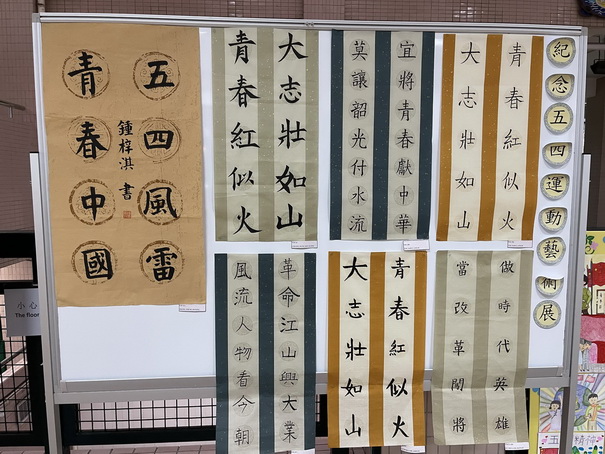 紀念五四運動藝術展
五四風雷
青春中國
鍾梓淇 書
大志壯如山
青春紅似火
宜將青春獻中華
莫讓韶光付水流
青春紅似火
大志壯如山
革命江山興大業
風流人物看今朝
青春紅似火
大志壯如山
做時代英雄
當改革闖將
小心
The floor